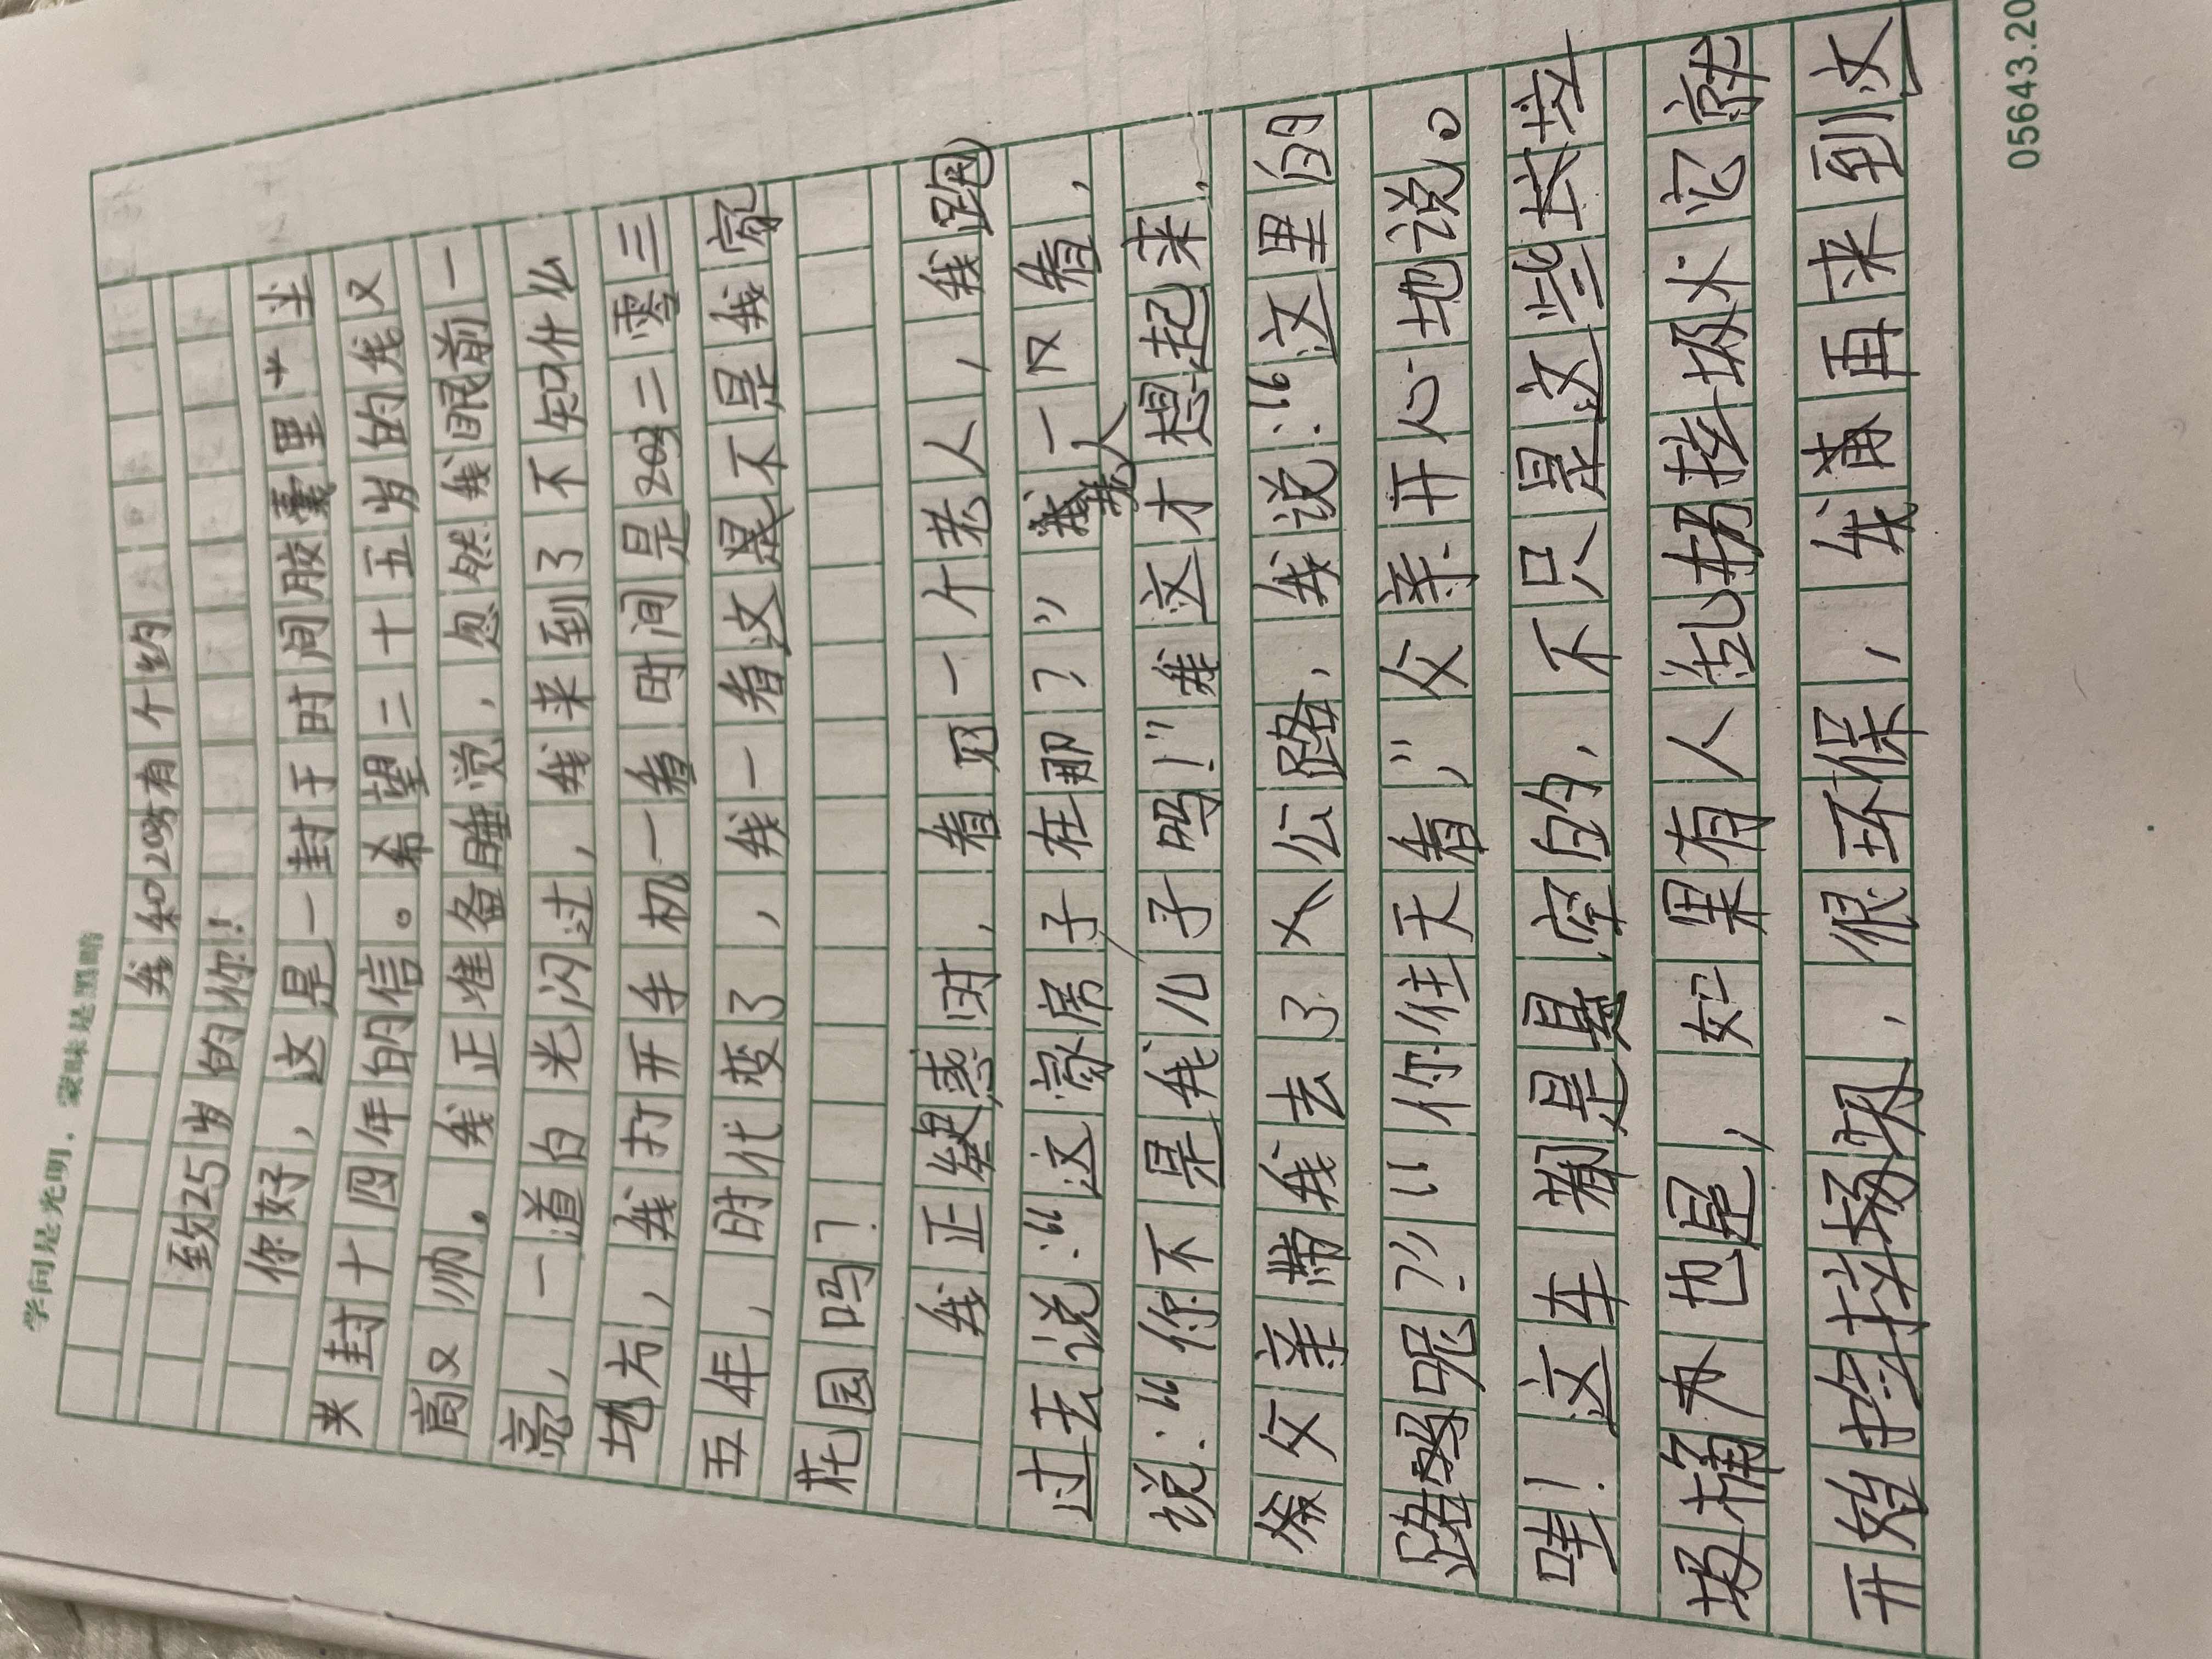 学问是光明，蒙昧是黑暗
我和20岁有个约
至欠25岁的你！
你好，这是一封于时间胶囊里
封十四年的信。希望二十五岁的我又
高又帅。我正准备睡觉，忽然我眼前一
亮，一道白光闪过，我来到了不知什么
地方，我打开手机一看时间是二零三
五年，时代变了，我一看这是不是我家
花园吗？
我正疑惑时，看见一个老人，我跑
过去说：“这家房子在哪？”老人一又看，
说：“你不是我儿子吗！”我这才想起来，
爷父亲带我去了公路，我说：“这里的
路呢？”“你往天看，”父亲开心地说。
哇！这车都是悬空的，不只是这些垃
圾桶为也是，如果有人乱扔垃圾它就
开始垃圾，很环保，我再来到这
05643.20